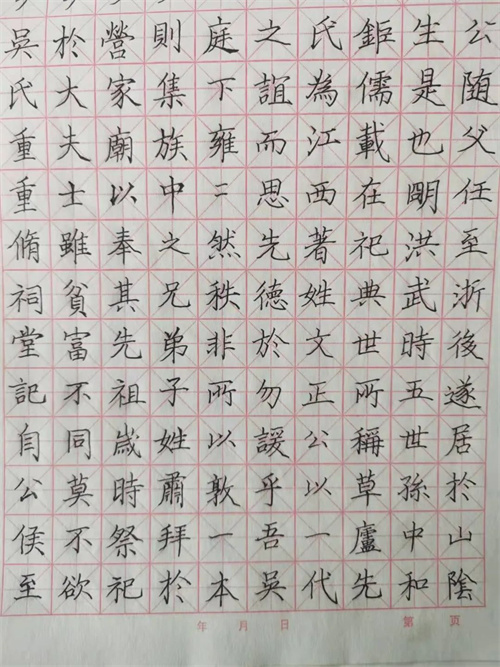 吳氏重重脩祠堂記自公侯至
於大夫士雖貧富不同莫不欲
營家廟以奉其先祖歲時祭祀
則集族中之兄弟子姓肅拜於
庭下雍二然秩非所以敦一本
之誼而思先德於勿諼乎吾吳
氏為江西著姓文正公以一代
鉅儒載在祀典世所稱草廬先
生是也眀洪武時五世孫中和
公随父任至浙後遂居於山陰
年 月 日 第 页